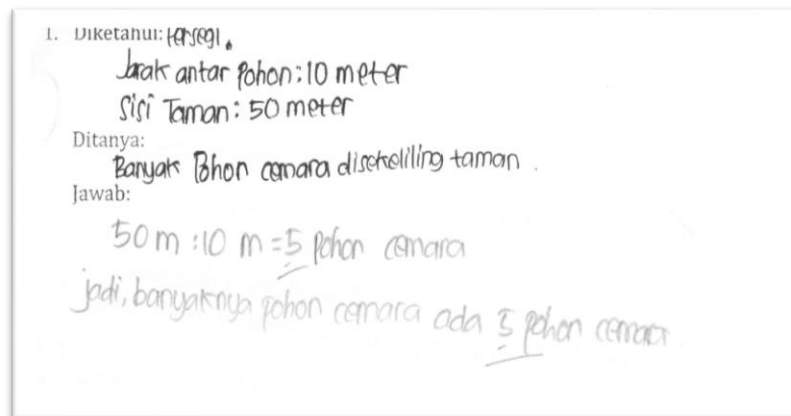 1. Diketahui: persegi.
Jarak antar Pohon : 10 meter
Sisi Taman : 50 meter
Ditanya:
Banyak Pohon cemara disekeliling taman .
Jawab:
50 m : 10 m = 5 Pohon cemara
jadi, banyaknya pohon cemara ada 5 pohon cemara